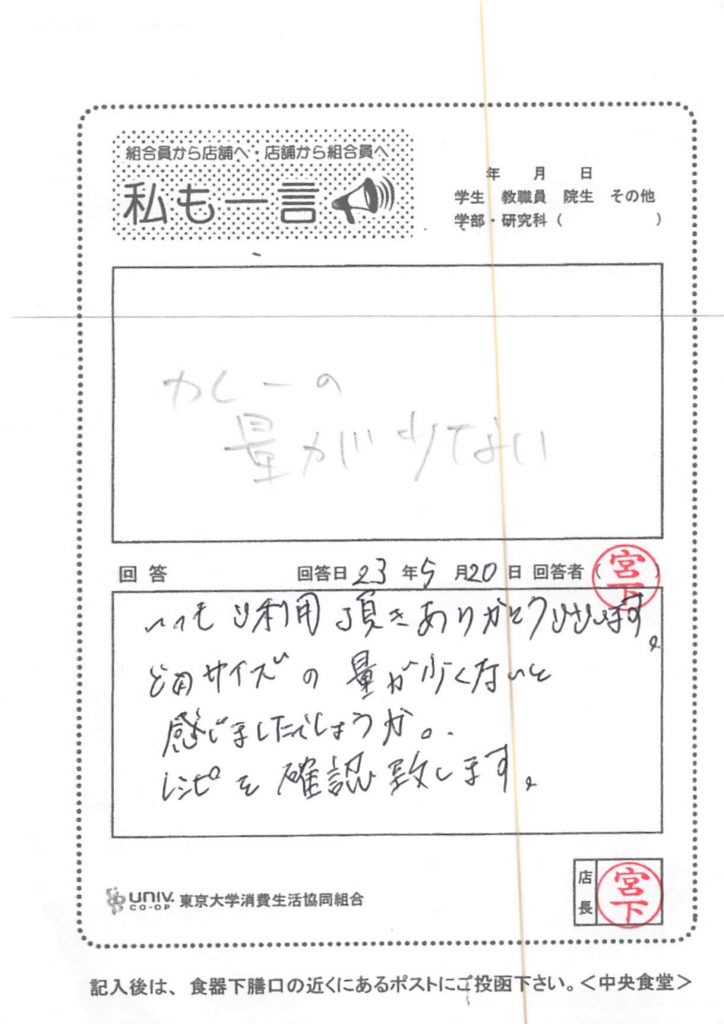 組合員から店舗へ・店舗から組合員へ
私も一言
年 月 日
学生 教職員 院生 その他
学部・研究科( )
カレーの
量が少てない
回答 回答日 23 年 5 月 20 日 回答者( 宮下 )
いつもご利用頂きありがとうございます。
どのサイズの量が少くないと
感じましたでしょうか。
レシピを確認致します。
UNIV. CO-OP 東京大学消費生活協同組合
店長 宮下
記入後は、食器下膳口の近くにあるポストにご投函下さい。<中央食堂>